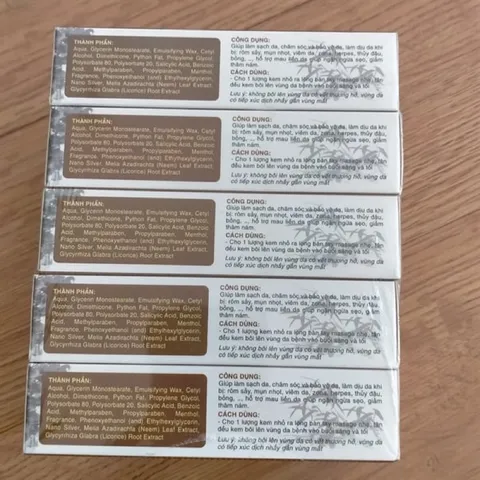 THÀNH PHẦN:
Aqua, Glycerin Monostearate, Emulsifying Wax, Cetyl
Alcohol, Dimethicone, Python Fat, Propylene Glycol,
Polysorbate 80, Polysorbate 20, Salicylic Acid, Boric
Acid, Methylparaben, Propylparaben, Menthol,
Fragrance, Phenoxyethanol (and) Ethylhexylglycerin,
Nano Silver, Melia Azadirachta (Neem) Leaf Extract,
Glycyrrhiza Glabra (Licorice) Root Extract
CÔNG DỤNG:
Giúp làm sạch da, chăm sóc và bảo vệ da, làm dịu da khi
bị: rôm sảy, mụn nhọt, viêm da, zona, herpes, thủy đậu,
bỏng, ..., hỗ trợ mau liền da giúp ngăn ngừa sẹo, giảm
thâm nám.
CÁCH DÙNG:
- Cho 1 lượng kem nhỏ ra lòng bàn tay massage nhẹ, tán
đều kem bôi lên vùng da bệnh vào buổi sáng và tối
Lưu ý: không bôi lên vùng da có vết thương hở, vùng da
có tiếp xúc dịch nhầy gần vùng mắt
THÀNH PHẦN:
Aqua, Glycerin Monostearate, Emulsifying Wax, Cetyl
Alcohol, Dimethicone, Python Fat, Propylene Glycol,
Polysorbate 80, Polysorbate 20, Salicylic Acid, Boric
Acid, Methylparaben, Propylparaben, Menthol,
Fragrance, Phenoxyethanol (and) Ethylhexylglycerin,
Nano Silver, Melia Azadirachta (Neem) Leaf Extract,
Glycyrrhiza Glabra (Licorice) Root Extract
CÔNG DỤNG:
Giúp làm sạch da, chăm sóc và bảo vệ da, làm dịu da khi
bị: rôm sảy, mụn nhọt, viêm da, zona, herpes, thủy đậu,
bỏng, ..., hỗ trợ mau liền da giúp ngăn ngừa sẹo, giảm
thâm nám.
CÁCH DÙNG:
- Cho 1 lượng kem nhỏ ra lòng bàn tay massage nhẹ, tán
đều kem bôi lên vùng da bệnh vào buổi sáng và tối
Lưu ý: không bôi lên vùng da có vết thương hở, vùng da
có tiếp xúc dịch nhầy gần vùng mắt
THÀNH PHẦN:
Aqua, Glycerin Monostearate, Emulsifying Wax, Cetyl
Alcohol, Dimethicone, Python Fat, Propylene Glycol,
Polysorbate 80, Polysorbate 20, Salicylic Acid, Boric
Acid, Methylparaben, Propylparaben, Menthol,
Fragrance, Phenoxyethanol (and) Ethylhexylglycerin,
Nano Silver, Melia Azadirachta (Neem) Leaf Extract,
Glycyrrhiza Glabra (Licorice) Root Extract
CÔNG DỤNG:
Giúp làm sạch da, chăm sóc và bảo vệ da, làm dịu da khi
bị: rôm sảy, mụn nhọt, viêm da, zona, herpes, thủy đậu,
bỏng, ..., hỗ trợ mau liền da giúp ngăn ngừa sẹo, giảm
thâm nám.
CÁCH DÙNG:
- Cho 1 lượng kem nhỏ ra lòng bàn tay massage nhẹ, tán
đều kem bôi lên vùng da bệnh vào buổi sáng và tối
Lưu ý: không bôi lên vùng da có vết thương hở, vùng da
có tiếp xúc dịch nhầy gần vùng mắt
THÀNH PHẦN:
Aqua, Glycerin Monostearate, Emulsifying Wax, Cetyl
Alcohol, Dimethicone, Python Fat, Propylene Glycol,
Polysorbate 80, Polysorbate 20, Salicylic Acid, Boric
Acid, Methylparaben, Propylparaben, Menthol,
Fragrance, Phenoxyethanol (and) Ethylhexylglycerin,
Nano Silver, Melia Azadirachta (Neem) Leaf Extract,
Glycyrrhiza Glabra (Licorice) Root Extract
CÔNG DỤNG:
Giúp làm sạch da, chăm sóc và bảo vệ da, làm dịu da khi
bị: rôm sảy, mụn nhọt, viêm da, zona, herpes, thủy đậu,
bỏng, ..., hỗ trợ mau liền da giúp ngăn ngừa sẹo, giảm
thâm nám.
CÁCH DÙNG:
- Cho 1 lượng kem nhỏ ra lòng bàn tay massage nhẹ, tán
đều kem bôi lên vùng da bệnh vào buổi sáng và tối
Lưu ý: không bôi lên vùng da có vết thương hở, vùng da
có tiếp xúc dịch nhầy gần vùng mắt
THÀNH PHẦN:
Aqua, Glycerin Monostearate, Emulsifying Wax, Cetyl
Alcohol, Dimethicone, Python Fat, Propylene Glycol,
Polysorbate 80, Polysorbate 20, Salicylic Acid, Boric
Acid, Methylparaben, Propylparaben, Menthol,
Fragrance, Phenoxyethanol (and) Ethylhexylglycerin,
Nano Silver, Melia Azadirachta (Neem) Leaf Extract,
Glycyrrhiza Glabra (Licorice) Root Extract
CÔNG DỤNG:
Giúp làm sạch da, chăm sóc và bảo vệ da, làm dịu da khi
bị: rôm sảy, mụn nhọt, viêm da, zona, herpes, thủy đậu,
bỏng, ..., hỗ trợ mau liền da giúp ngăn ngừa sẹo, giảm
thâm nám.
CÁCH DÙNG:
- Cho 1 lượng kem nhỏ ra lòng bàn tay massage nhẹ, tán
đều kem bôi lên vùng da bệnh vào buổi sáng và tối
Lưu ý: không bôi lên vùng da có vết thương hở, vùng da
có tiếp xúc dịch nhầy gần vùng mắt